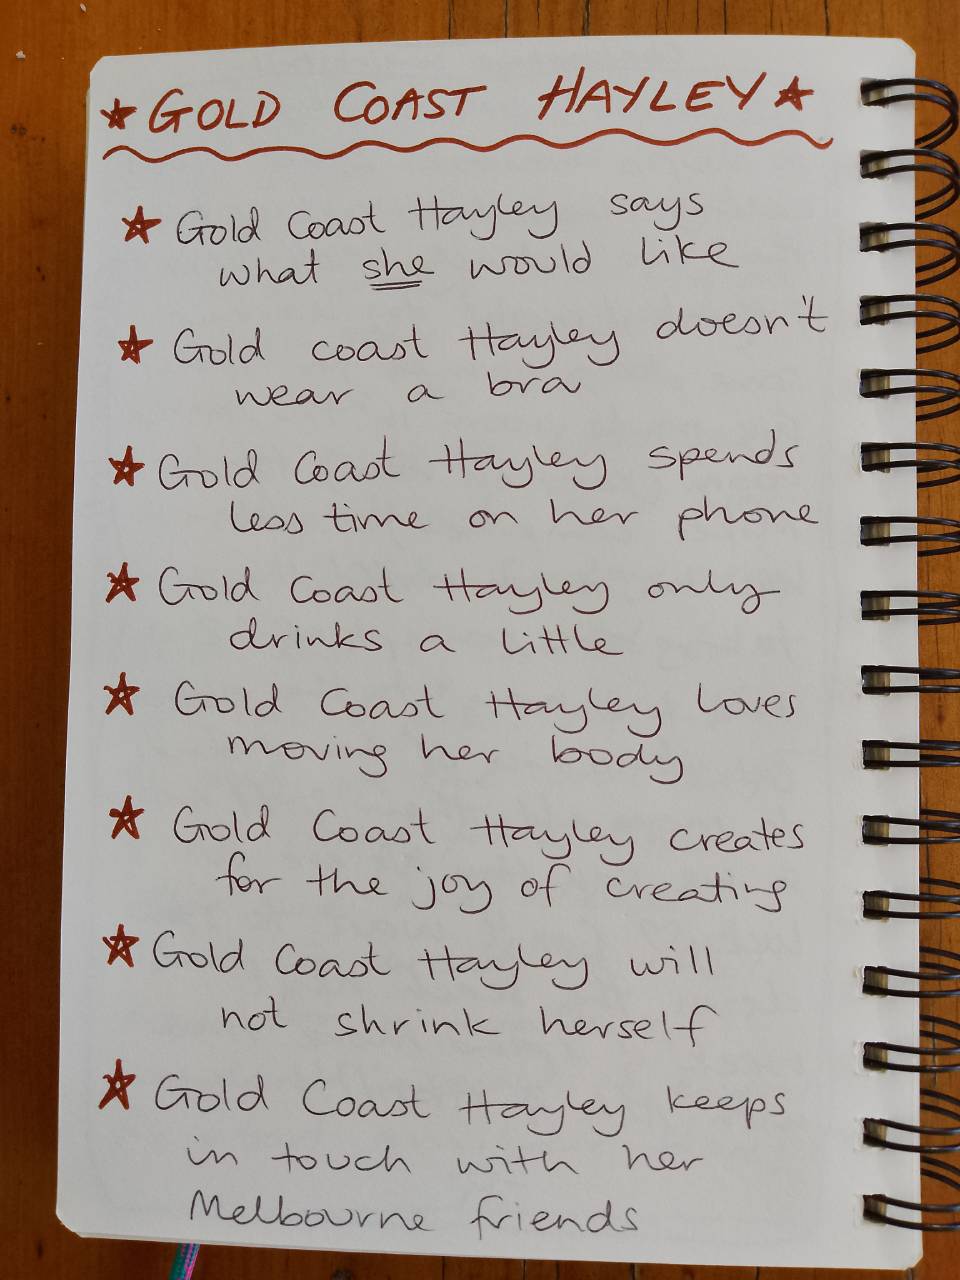 GOLD COAST HAYLEY
Gold Coast Hayley says
what she would like
Gold coast Hayley doesn't
wear a bra
Gold Coast Hayley spends
less time on her phone
Gold Coast Hayley only
drinks a little
Gold Coast Hayley loves
moving her body
Gold Coast Hayley creates
for the joy of creating
Gold Coast Hayley will
not shrink herself
Gold Coast Hayley keeps
in touch with her
Melbourne friends